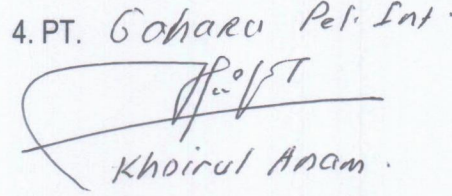 4. PT. Gaharu Pel. Int.
Khoirul Anam.